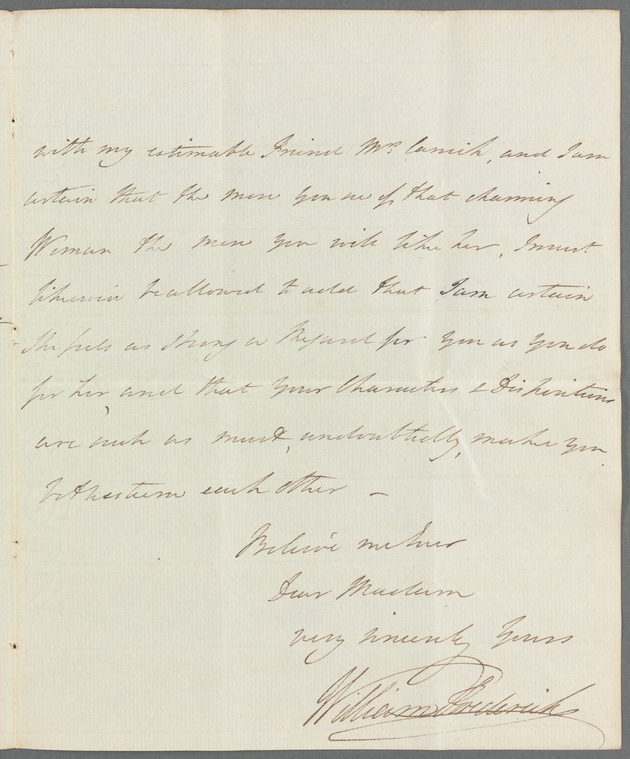 with my estimable Friend Mrs. Carrick, and I am
certain that the more you see of that charming
Woman the more you will like her, I must
likewise be allowed to add that I am certain
She feels as strong a Regard for you as you do
for her and that your Characters & Dispositions
are such as must, undoubtedly, make you
both esteem each other —
Believe me Ever
Dear Madam
very sincerely Yours
William Frederick